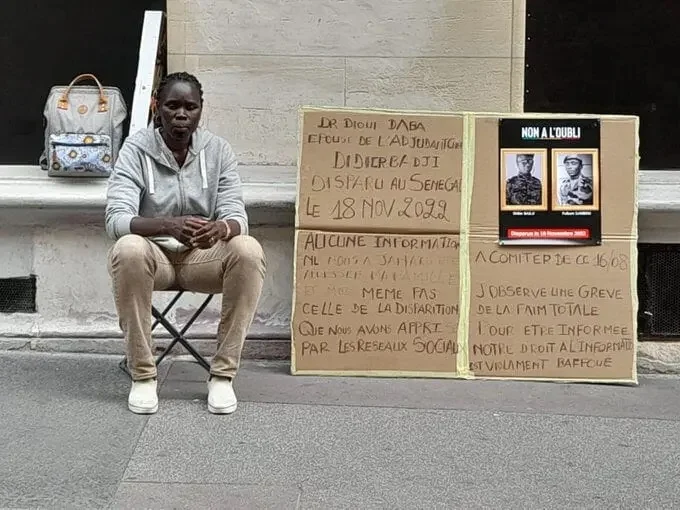 DR DIOUI DABA
EPOUSE DE L'ADJUDANT
DIDIER BADJI
DISPARU AU SENEGAL
LE 18 NOV 2022
AUCUNE INFORMATION
NE NOUS A JAMAIS ETE
MA FAMILLE
ET MOI MEME PAS
CELLE DE LA DISPARITION
QUE NOUS AVONS APPRIS
PAR LES RESEAUX SOCIAUX
NON A L'OUBLI
Didier BADJI
Fulbert SAMBOU
Disparus le 18 Novembre 2022
A COMPTER DE CE 16/08
J'OBSERVE UNE GREVE
DE LA FAIM TOTALE
POUR ETRE INFORMEE
NOTRE DROIT A L'INFORMATI
EST VIOLAMENT BAFFOUE